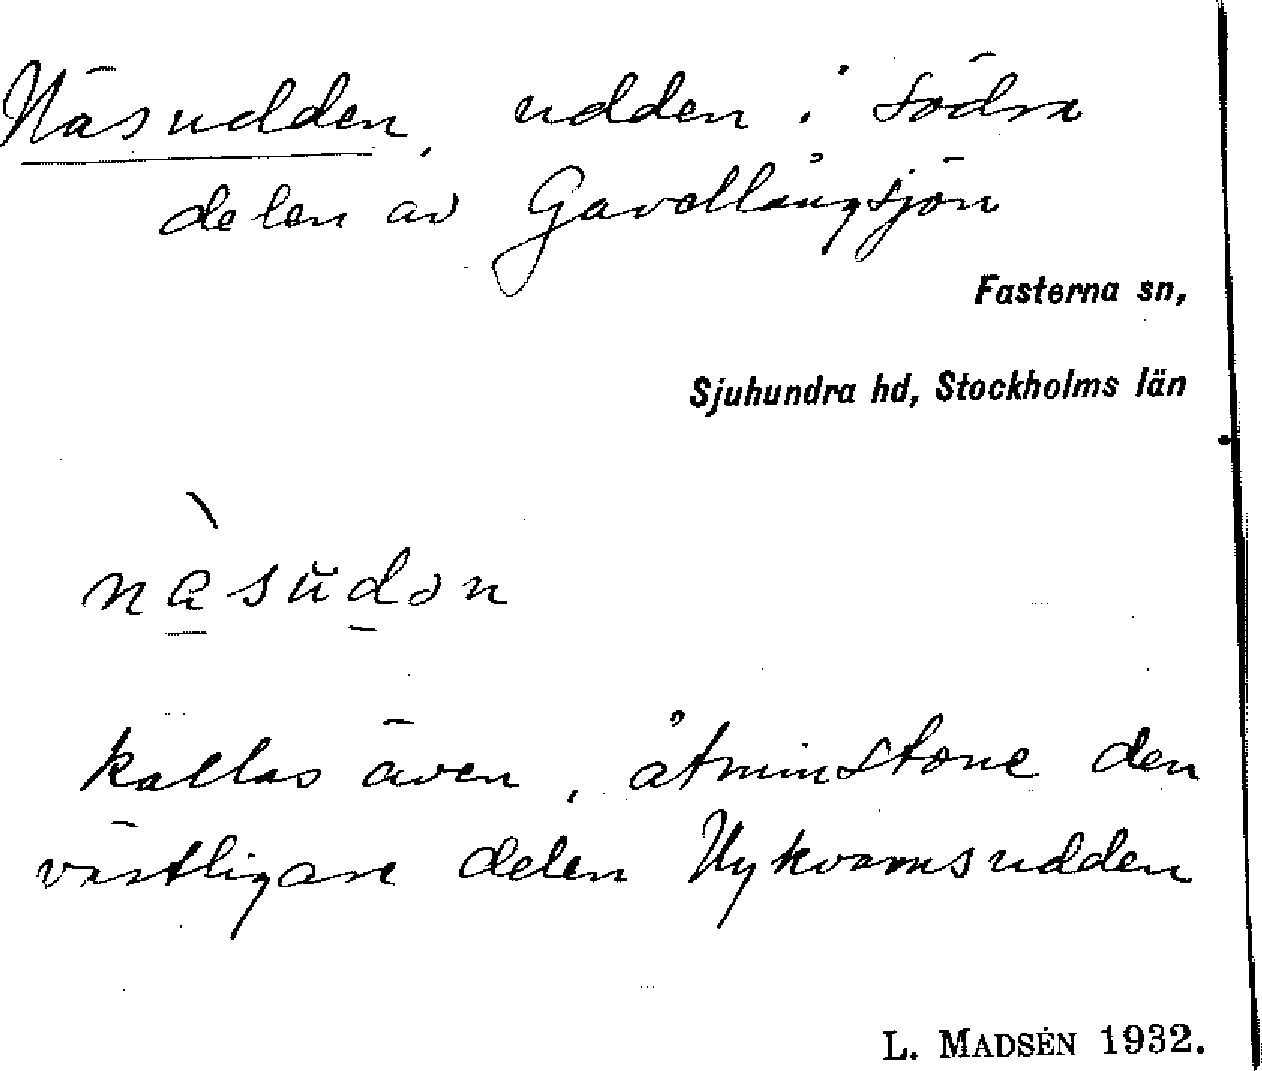 Näsudden, udden i södra
delen av Gavellångsjön
Fasterna sn,
Sjuhundra hd, Stockholms län
nàsŭdən
kallas även, åtminstone den
västligare delen Nykvarnsudden
L. MADSÉN 1932.